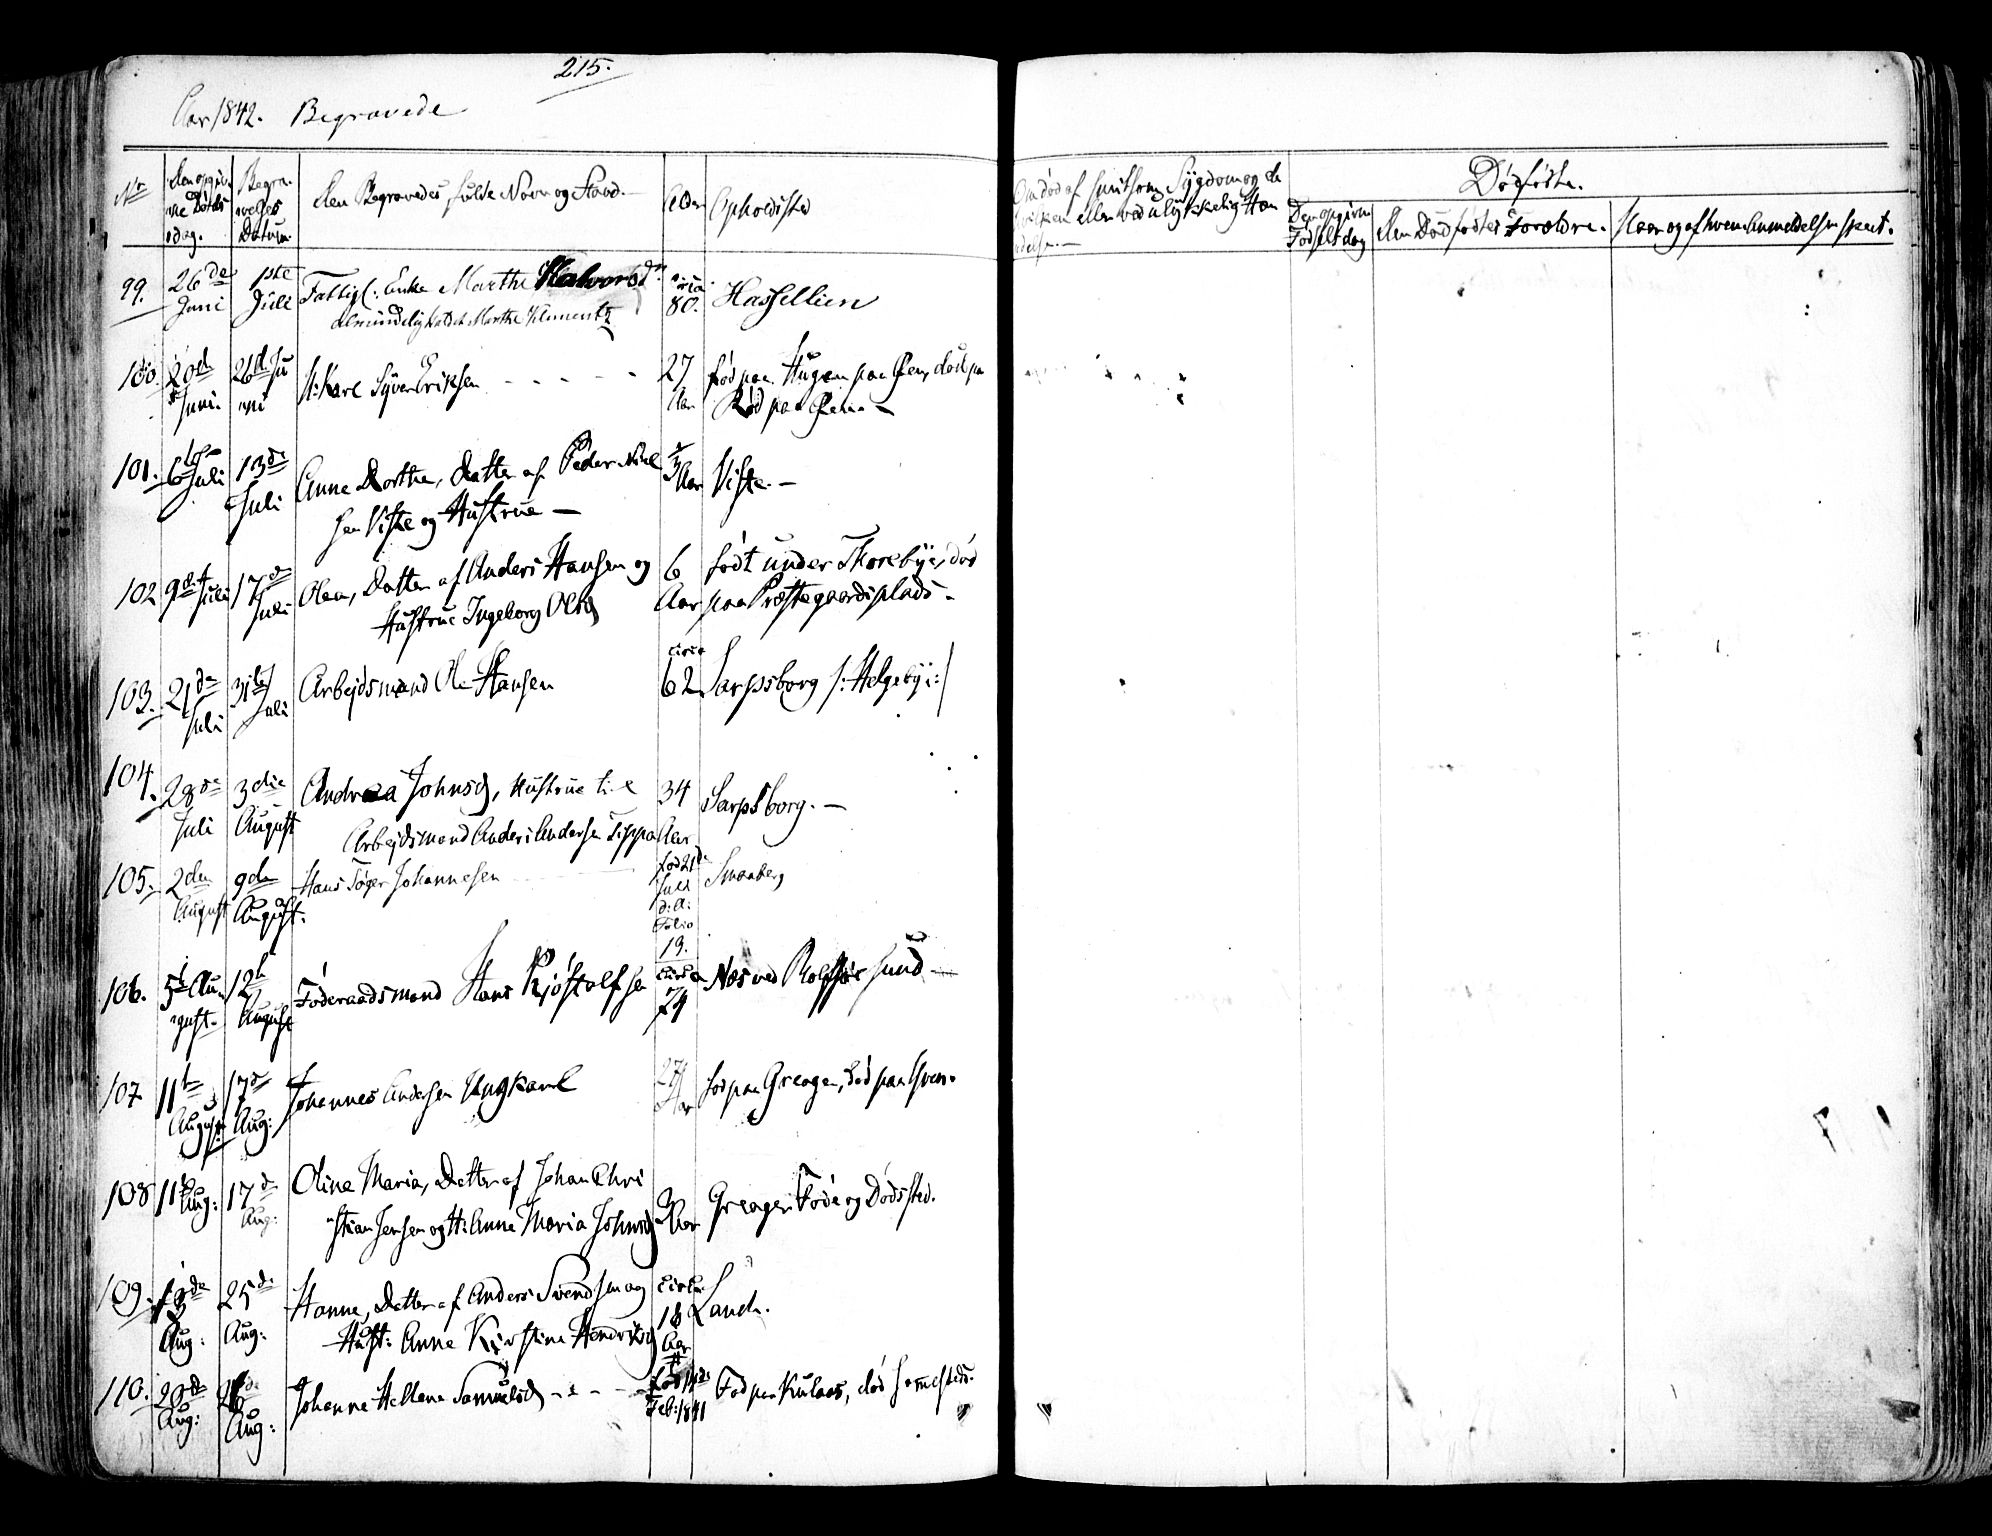 215.
Aar 1842. Begravede
Nr
Den opgiv-
ne Døds
dag.
Begra-
velses
Datum.
Den Begravedes fulde Navn og Stand.
Alder
Opholdsted
Om død af smitsom Sygdom og de
eller ved ulykkelig Hæn
delse.
Dødfødte.
Den opgivne
Fødselsdag
Den Dødfødtes Forældre.
Naar og af hvem Anmeldelsen skeet.
99.
26de
Juni
1ste
Juli
Fattigl: Enke Marthe Halvorsd
almindelig kaldet Marthe Klements
circa
80.
Hassellien
100.
20de
Juni.
26d. Ju
ni
U:Karl Syver Eriksen
27
Aar
fød paa Haugen paa Øen, død paa
Rød paa Øen.
101.
6te
Juli
13de
Juli
Anne Dorthe, Datter af Peder Niel
sen Viste og Hustrue
3
Aar
Viste.
102
9de Juli
17de
Juli
Olea, Datter af Anders Hansen og
Hustrue Ingeborg Olsd
6
Aar
født under Thorebye, død
paa Præstegaardsplads
103.
21de
Juli
31te
Juli
Arbejdsmand Ole Hansen
circa
62
Sarpsborg /: Helgebye :/
104.
28de
Juli
3die
August
Andrea Johnsd, Hustrue til
Arbejdsmand Anders Andersen Tippa
34
Aar
Sarpsborg.
105.
2den
August
9de
August.
Hans Tøger Johannesen
fød 21de
Juli
d: A:
Folio
19.
Smaaberg
106.
5te Au-
gust
12te
August
Føderaadsmand Hans Kjøstolfsen
circa
74
Næs ved Rolfsøe Sund
107
11te
August
17de
Aug:
Johannes Andersen Ungkarl
27
Aar
fød paa Greager, død paa Hven.
108
11te
Aug:
17de
Aug:
Oline Maria, Datter af Johan Chri
stian Jensen og H: Anne Maria Johnsd
Aar
Greager Føde og Dødssted.
109.
Aug:
25de
Aug:
Hanne, Datter af Anders Svendsen og
Hust: Anne Kirstine Hendriksd
circa
18
Aar
Lande.
110.
20de
Aug:
26de
Aug:
Johanne Hellene Samuelsd
fød 14de
Feb: 1841
Fød paa Kulaas, død sammesteds.